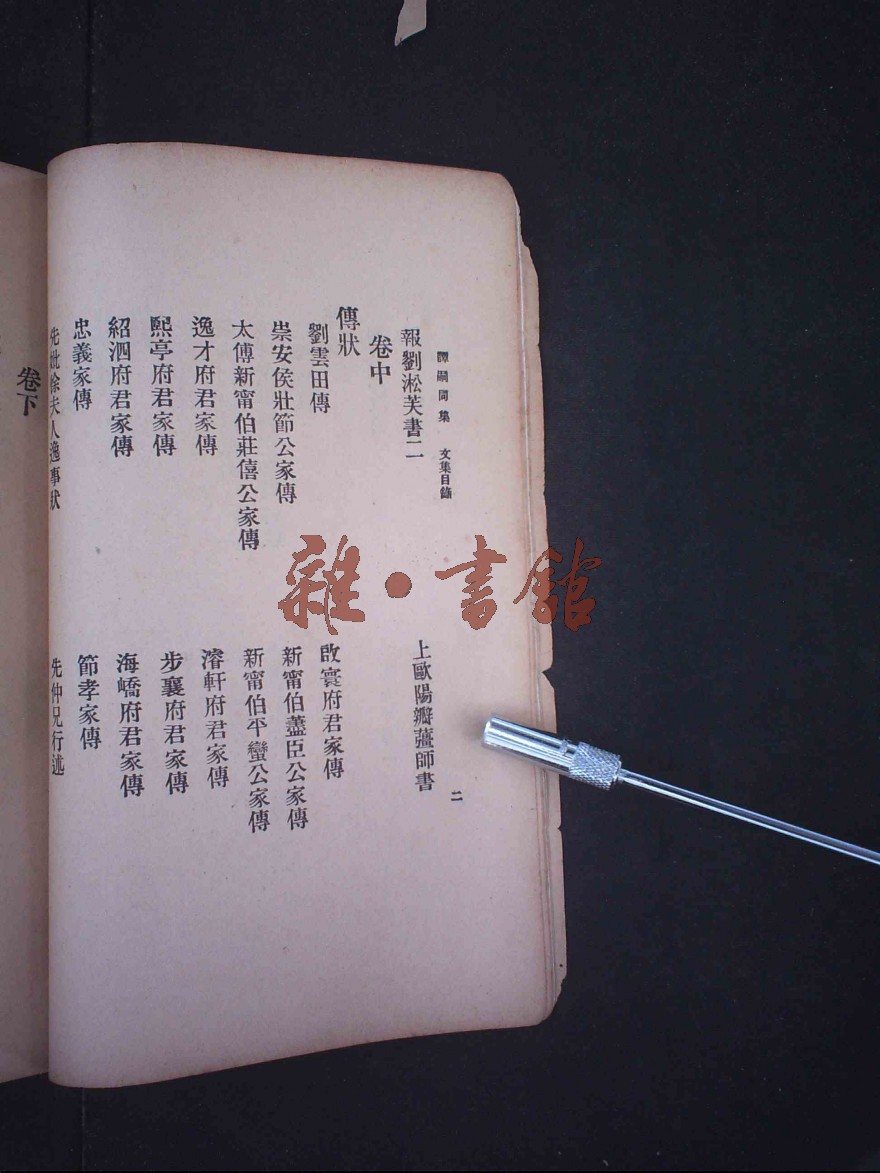 譚嗣同集 文集目錄 二
報劉淞芙書二 上歐陽瓣薑師書
卷中
傳狀
劉雲田傳 啟寰府君家傳
崇安侯壯節公家傳 新甯伯藎臣公家傳
太傅新甯伯莊僖公家傳 新甯伯平蠻公家傳
逸才府君家傳 濬軒府君家傳
熙亭府君家傳 步襄府君家傳
紹泗府君家傳 海嶠府君家傳
忠義家傳 節孝家傳
先妣徐夫人逸事狀 先仲兄行述
卷下
雜·書館